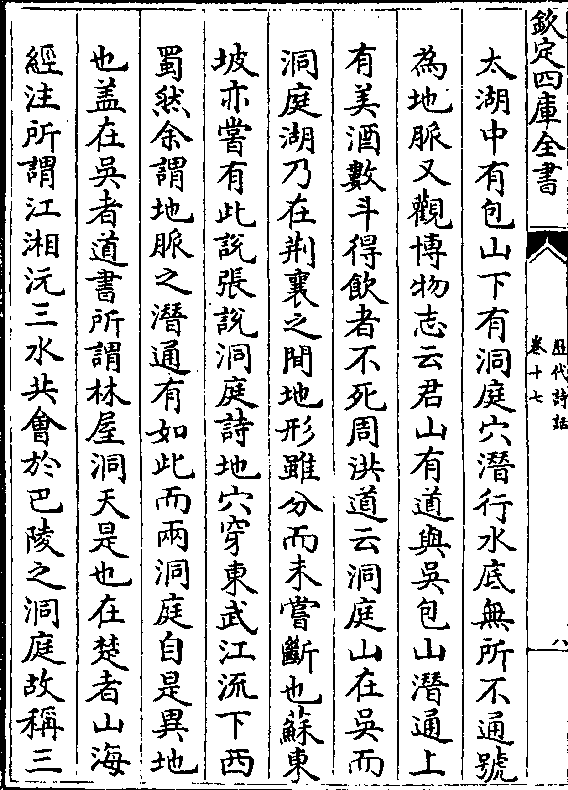 欽定四庫全書
歷代詩話
卷十七
八
太湖中有包山下有洞庭穴潛行水底無所不通號
為地脈又觀博物志云君山有道與吳包山潛通上
有美酒數斗得飲者不死周洪道云洞庭山在吳而
洞庭湖乃在荆襄之間地形雖分而未嘗斷也蘇東
坡亦嘗有此說張說洞庭詩地穴穿東武江流下西
蜀然余謂地脈之潛通有如此而兩洞庭自是異地
也盖在吳者道書所謂林屋洞天是也在楚者山海
經注所謂江湘沅三水共會於巴陵之洞庭故稱三